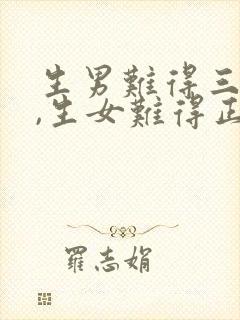 生男難得三
,生女難得正
羅志娟